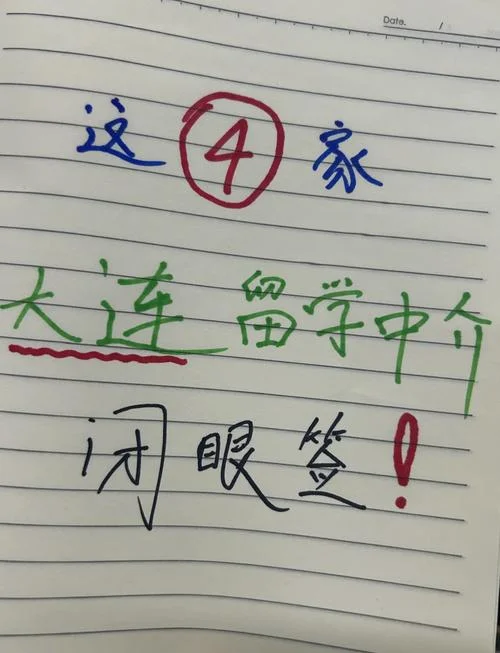 Date. /
这4家
大连留学中介
闭眼签!